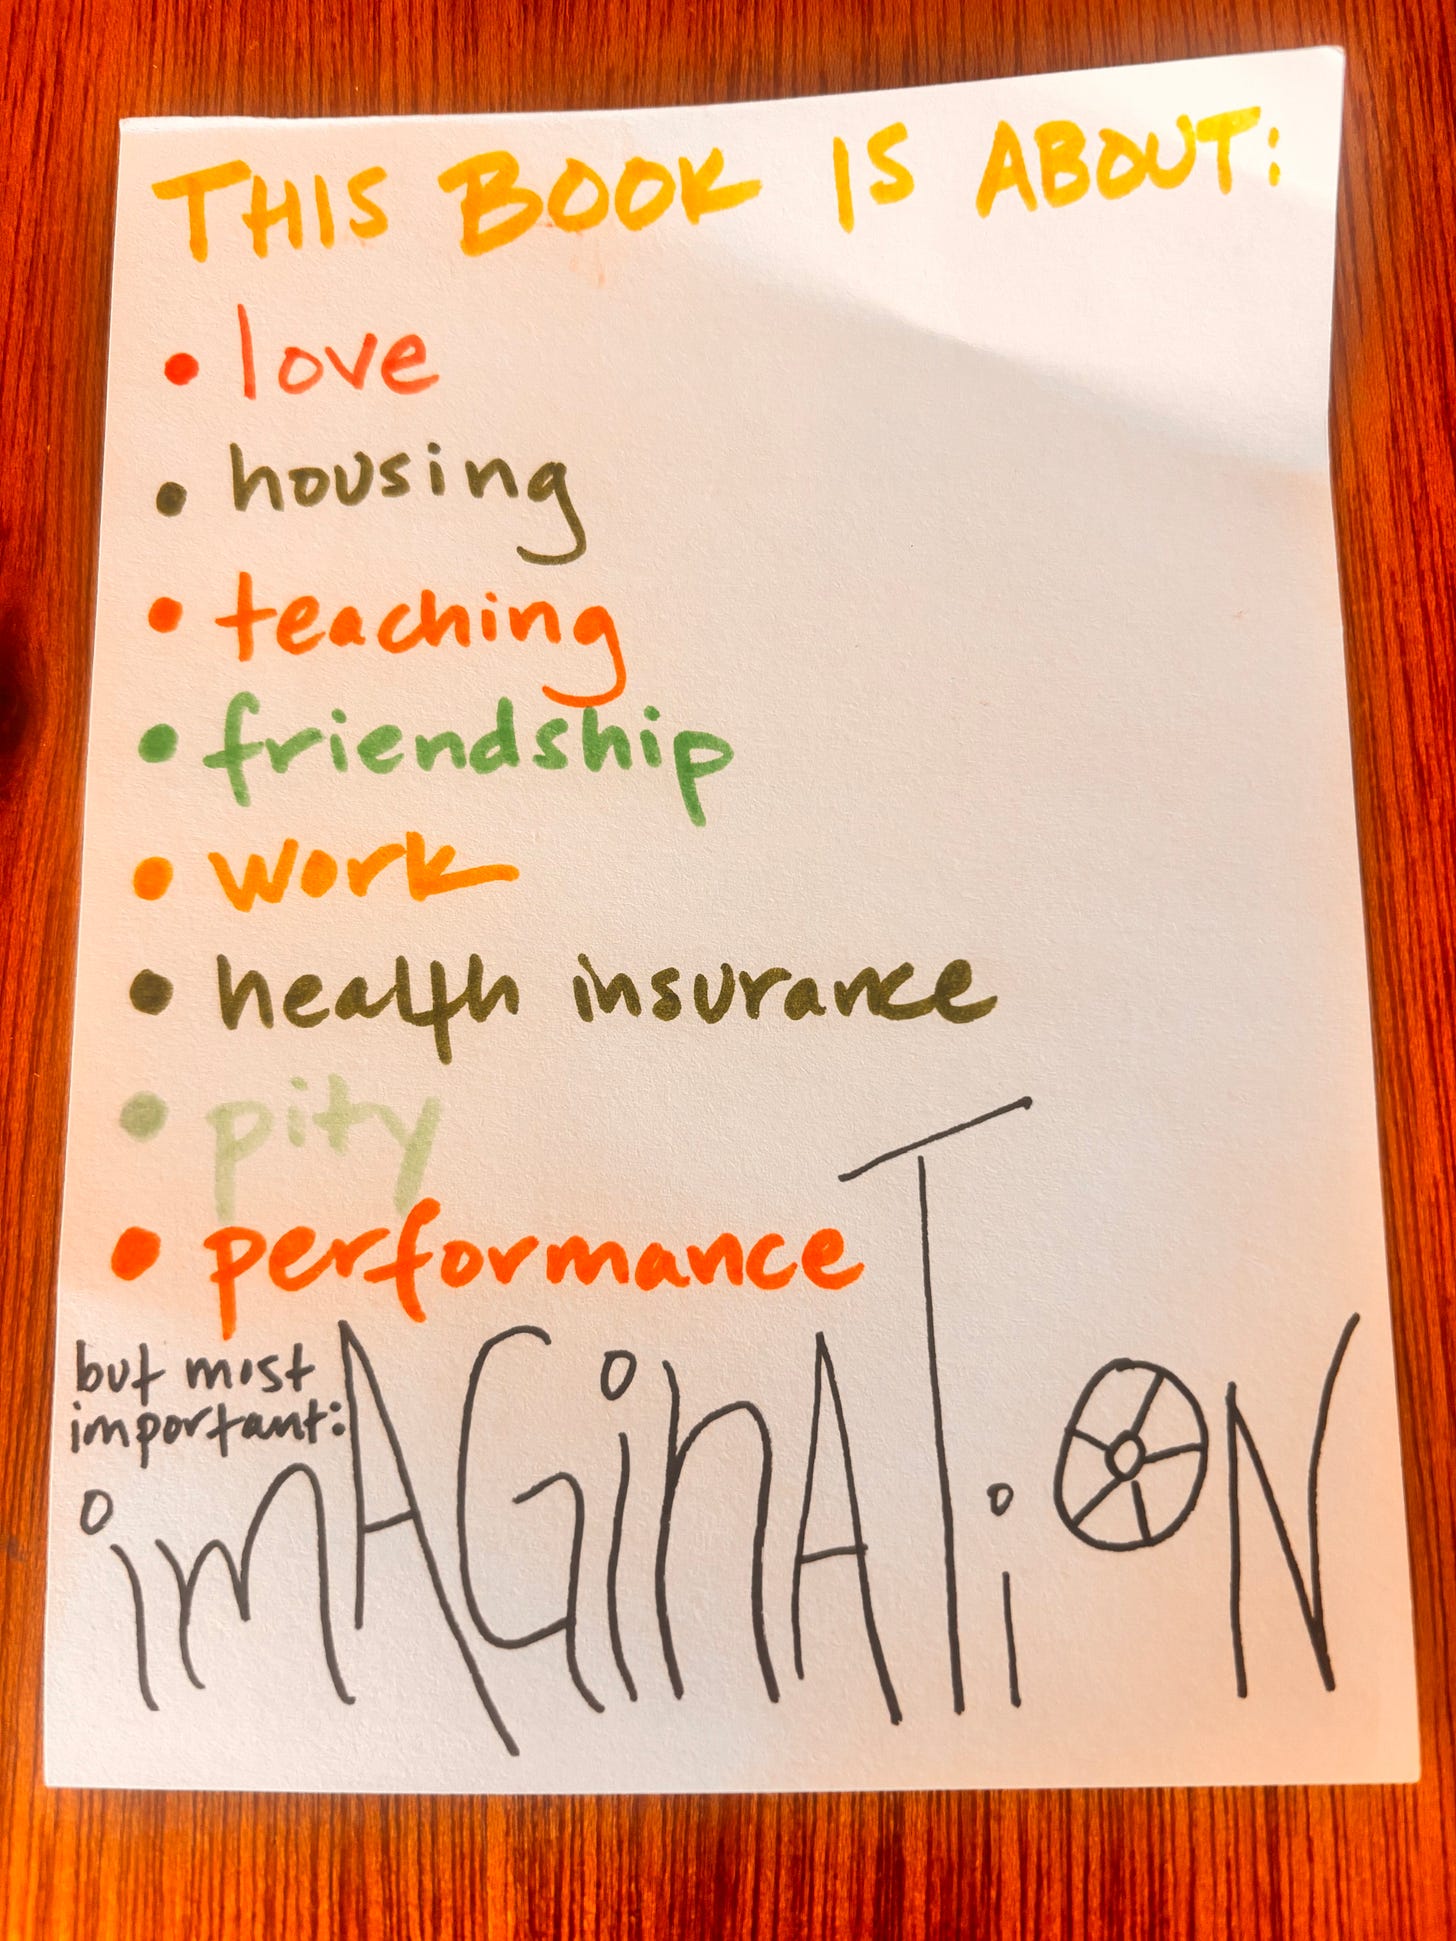 THIS BOOK IS ABOUT:
• love
• housing
• teaching
• friendship
• work
• health insurance
• pity
• performance
but most
important:
imAGinATiON